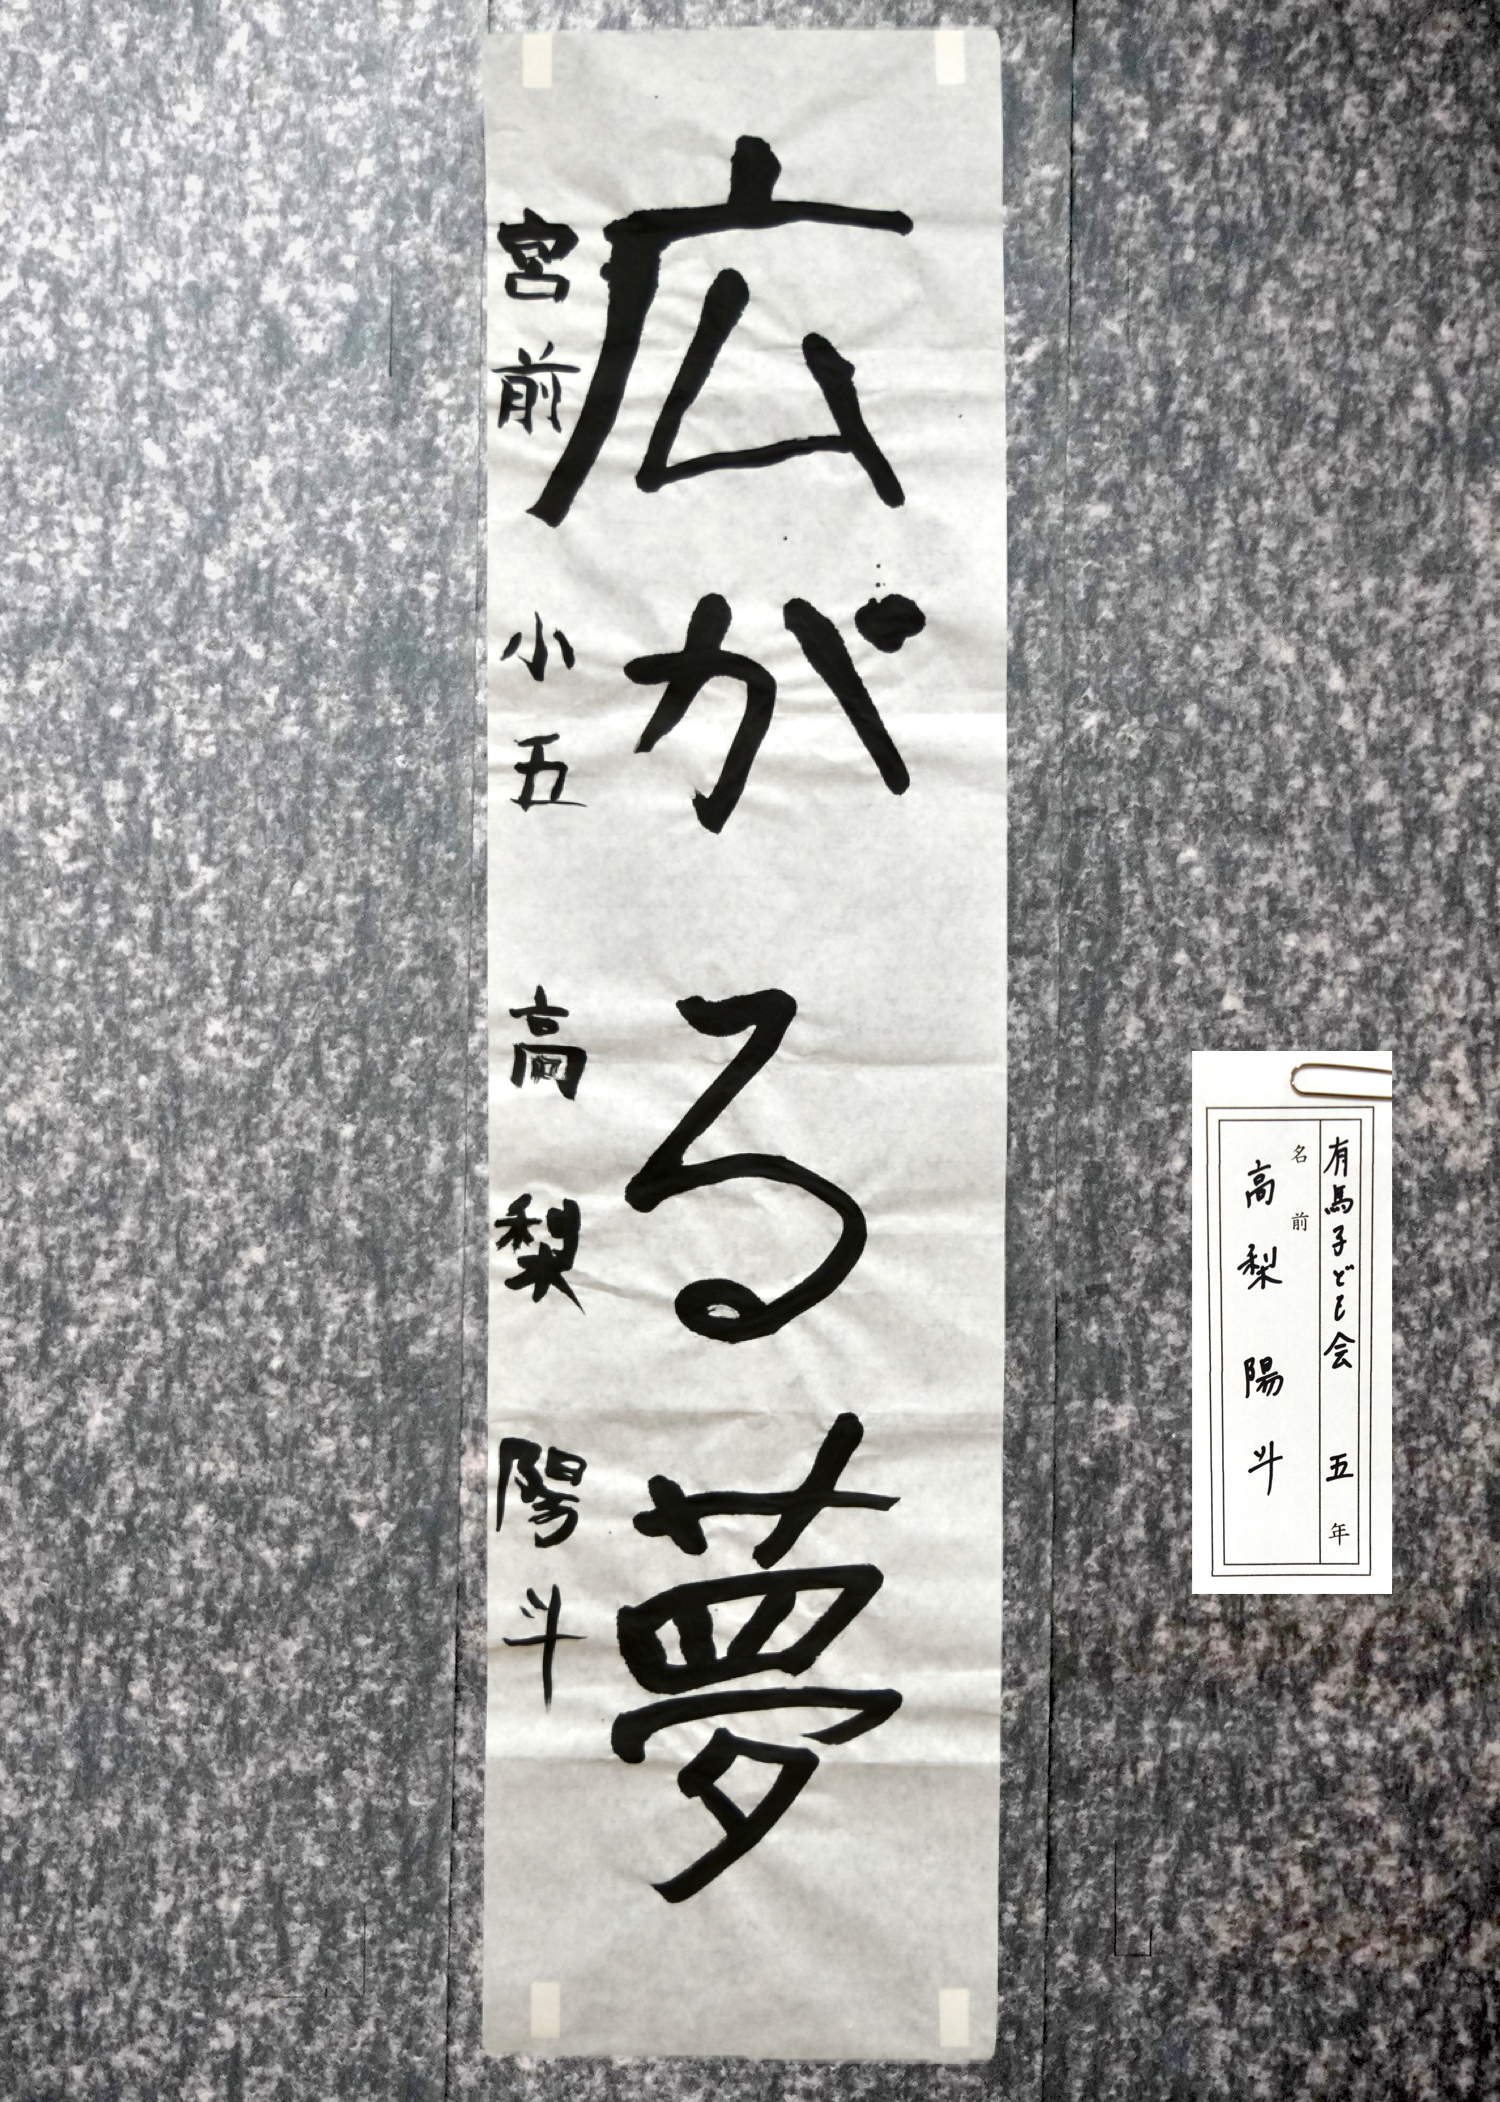 広がる夢
宮前小五 高梨陽斗
有馬子ども会 五年
名前
高梨陽斗